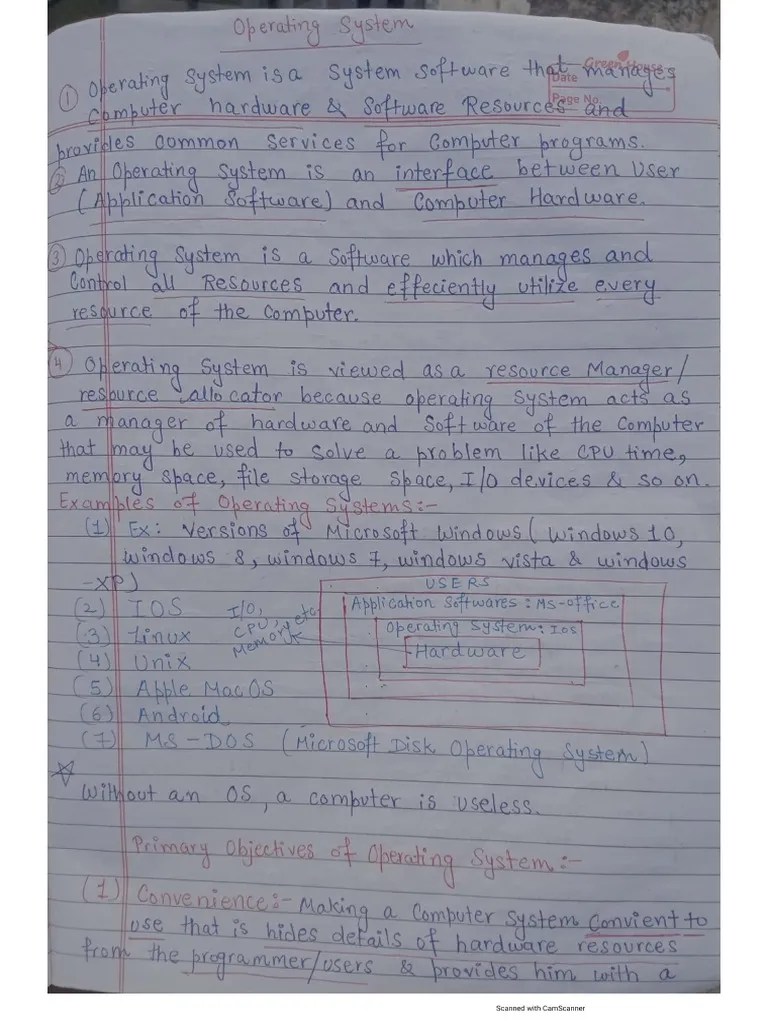 Operating System
Green House
Date
Page No.
① Operating System is a System Software that manages
Computer hardware & Software Resources and
provides common services for Computer programs.
② An Operating System is an interface between User
(Application Software) and Computer Hardware.
③ Operating System is a Software which manages and
Control all Resources and effeciently utilize every
resource of the Computer.
④ Operating System is viewed as a resource Manager/
resource allocator because operating system acts as
a manager of hardware and Software of the Computer
that may be used to solve a problem like CPU time,
memory space, file storage space, I/O devices & so on.
Examples of Operating Systems:-
(1) Ex: Versions of Microsoft Windows (Windows 10,
windows 8, windows 7, windows vista & windows
-XP)
USERS
Application Softwares: MS-office
Operating System: Ios
Hardware
I/O,
CPU,
Memory etc
(2) IOS
(3) Linux
(4) Unix
(5) Apple MacOS
(6) Android
(7) MS-DOS (Microsoft Disk Operating System)
☆ Without an OS, a computer is useless.
Primary Objectives of Operating System:-
(1) Convenience:- Making a Computer System Convient to
use that is hides details of hardware resources
from the programmer/users & provides him with a
Scanned with CamScanner